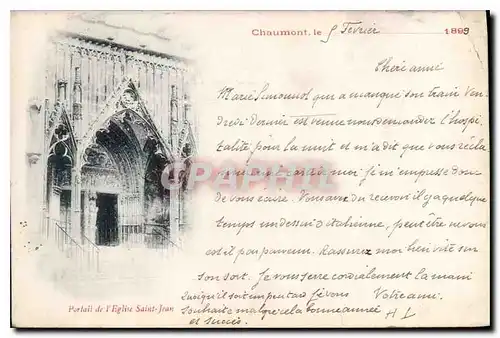 Chaumont, le 5 Fevrier 1899
Chère amie
Marie Simonnot qui a manqué son train Ven-
dredi dernier est venue nous demander l'hospi
talité pour la nuit et m'a dit que vous
moi je m'empresse donc
de vous écrire. Vous du recevoir il y a quelque
temps un dessin d'italienne, peut être ne vous
est il pas parvenu. Rassurez moi bien vite sur
son sort. Je vous serre cordialement la main
quoiqu'il soit un peu tard je vous Votre amie
souhaite malgré cela bonne année H L
et succès.
Portail de l'Eglise Saint-Jean
CPARAMA.COM